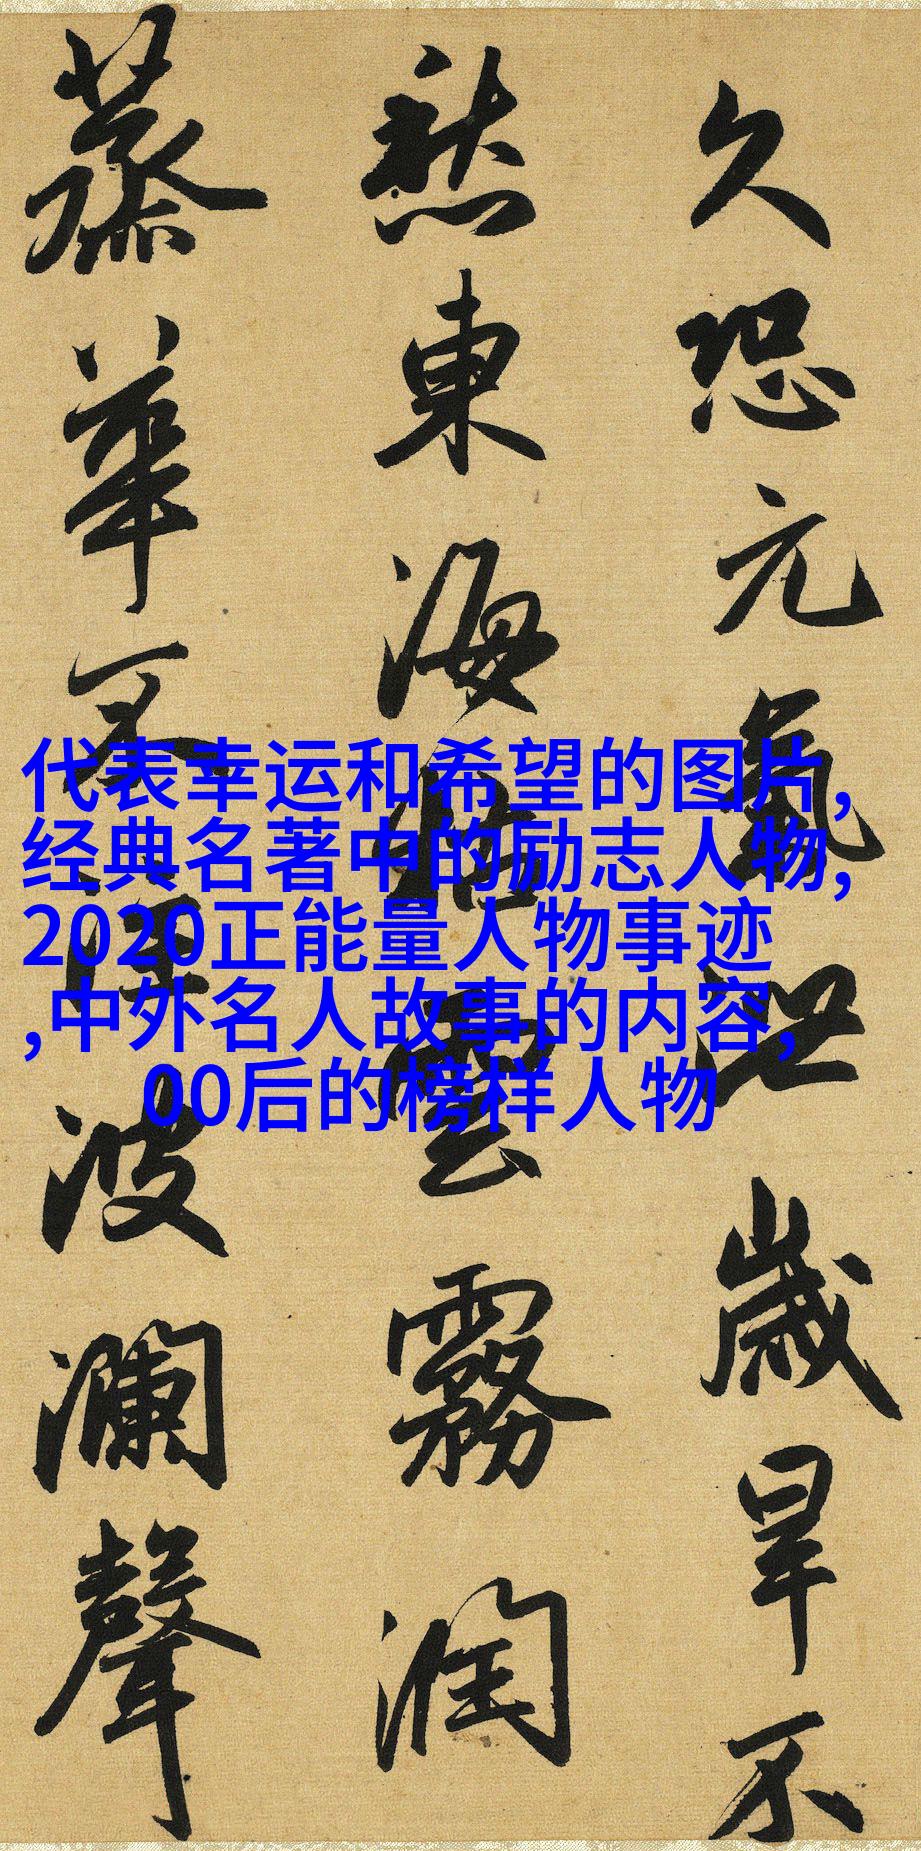 久恐元氣泄歲旱不
愁東海枯雲霧潤
蒸華不注波瀾聲
代表幸运和希望的图片,
经典名著中的励志人物,
2020正能量人物事迹
,中外名人故事的内容,
00后的榜样人物